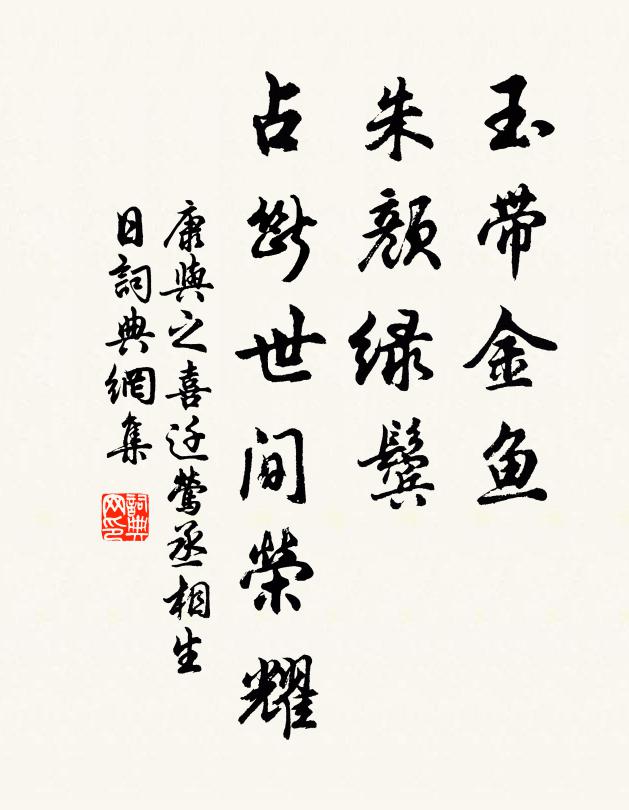 玉带金鱼
朱颜绿鬓
占断世间荣耀
康與之喜迁莺丞相生
日詞典網集
詞典网印